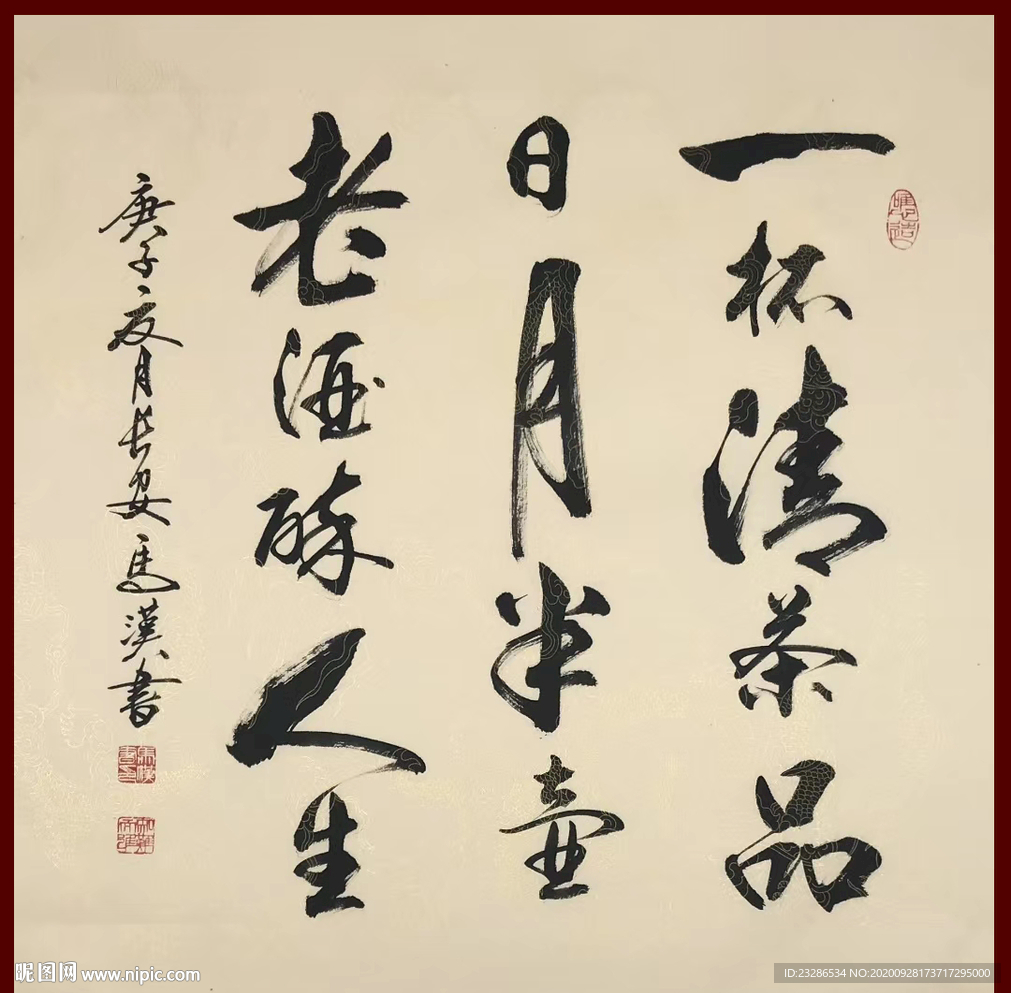 一杯清茶品
日月半壷
老酒醉人生
庚子夏月長安馬漢書
昵图网 www.nipic.com
ID:23286534 NO:20200928173717295000